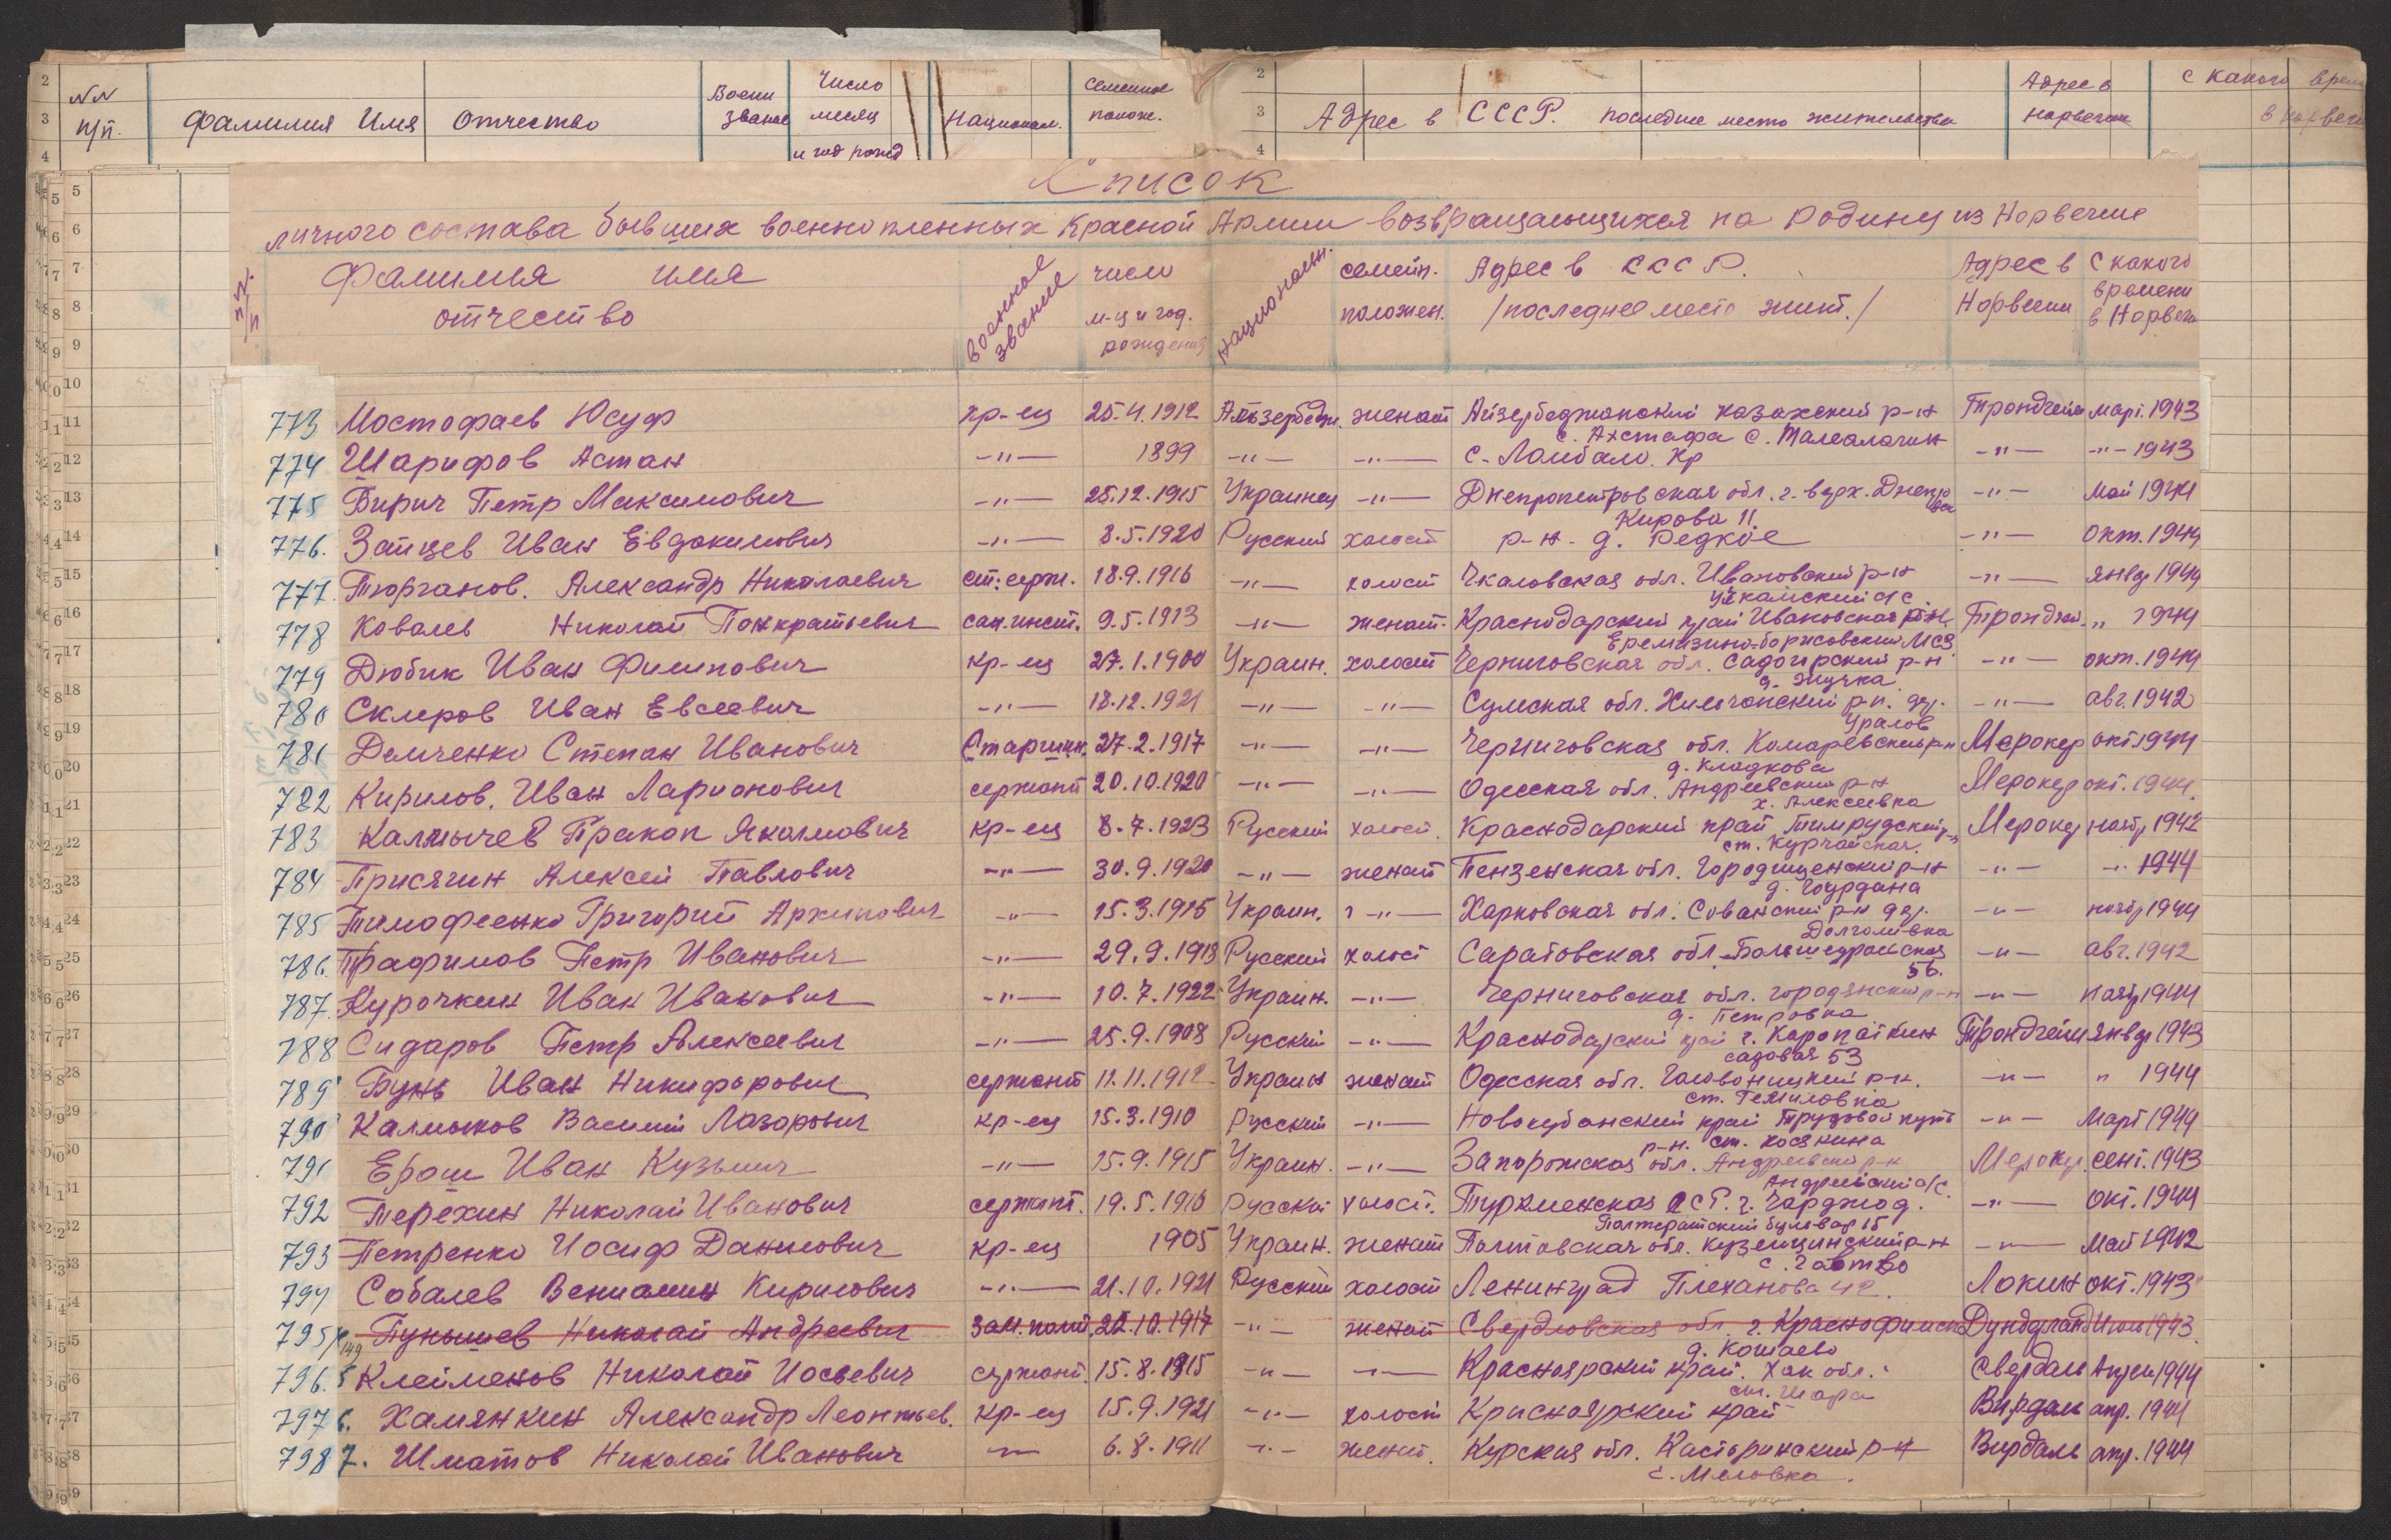 NN п/п. Фамилия Имя Отчество Военн звание Число месяц и год рожд Национал. Семейное полож. Адрес в СССР. последнее место жительства Адрес в Норвегии С какого врем в Норвеги
Список
личного состава бывших военнопленных Красной Армии возвращающихся на Родину из Норвегии
Фамилия имя отчество военное звание число м-ц и год. рождения национальн. семейн. положен. Адрес в СССР. /последнее место жит./ Адрес в Норвегии С какого времени в Норвеги
773 Мостофаев Юсуф кр-ец 25.4.1912 женат Айзербеджанский казахский р-н март. 1943
с. Ахстафа с.
774 Шарифов Астан -"- 1899 -"- -"- с. Ламбало. Кр -"- -"- 1943
775 Бирич Петр Максимович -"- 25.12.1915 Украинец -"- Днепропетровская обл. г. верх. Днепр -"- Май 1944
Кирова 11.
776. Зайцев Иван Евдокимович -"- 8.5.1920 Русский холост р-н. д. Редкое -"- окт. 1944
777. Тюрганов. Александр Николаевич ст. серж. 18.9.1916 -"- холост Чкаловская обл. Ивановский р-н -"- январ 1944
778 Ковалев Николай Панкратьевич сан. инст. 9.5.1913 -"- женат. Краснодарский край Ивановская Трондгей. " 1944
Еремизино-борисовский
779 Дюбик Иван Филипович кр-ец 27.1.1900 Украин. холост Черниговская обл. р-н -"- окт. 1944
д. Жучка
780 Скляров Иван Евсеевич -"- 18.12.1921 -"- -"- Сумская обл. Хильчанский р-н. дер. -"- авг. 1942
Уралов
781 Демченко Степан Иванович Старшин. 27.2.1917 -"- -"- Черниговская обл. Комаревский р-н Мерокер окт. 1944
д. Кладкова
782 Кирилов. Иван Ларионович сержант 20.10.1920 -"- -"- Одесская обл. Андреевский р-н Мерокер окт. 1944.
х. Алексеевка
783 Калмычев Пракоп кр-ец 8.7.1923 Русский холост. Краснодарский край Темрудский р-н Мерокер ноябр 1942
ст. Курчайская.
784 Присягин Алексей Павлович -"- 30.9.1920 -"- женат Пензенская обл. Городищенский р-н -"- -"- 1944
785 Тимофеенко Григорий Архипович -"- 15.3.1915 Украин. -"- Харковская обл. р-н дер. -"- ноябр 1944
786. Трафимов Петр Иванович -"- 29.9.1913 Русский холост Саратовская обл. -"- авг. 1942
56.
787. Курочкин Иван Иванович -"- 10.7.1922 Украин. -"- Черниговская обл. городянский р-н -"- ноябр 1944
д. Петровка
788 Сидаров Петр Алексеевич -"- 25.9.1908 Русский -"- Краснодарский край г. Каропаткин Трондгейм январ 1943
садовая 53
789 Бунь Иван Никифорович сержант 11.11.1912 Украин женат Одесская обл. р-н. -"- " 1944
790 Калмыков Василий Лазорович кр-ец 15.3.1910 Русский -"- Новокубанский край Трудовой путь -"- Март 1944
р-н. ст. Косякина
791 Ерош Иван Кузьмич -"- 15.9.1915 Украин. -"- Запорожская обл. Андреевский р-н Мерокер. сент. 1943
Андреевский с/с.
792 Терехин Николай Иванович сержант. 19.5.1916 Русский холост. Туркменская ССР. г. Чарджод. -"- окт. 1944
бульвар 15
793 Петренко Иосиф Данилович кр-ец 1905 Украин. женат Полтовская обл. р-н -"- Май 1942
794 Собалев Вениамин Кирилович -"- 21.10.1921 Русский холост Ленинград Плеханова 42. Локин окт. 1943
795 149 Пунышев Николай Андреевич зам. полит. 22.10.1917 -"- женат Свердловская обл. г. Краснофимск Июль 1943
д. Кошаево
796. 5 Клейменов Николай Иосьевич сержант. 15.8.1915 -"- -"- Красноярский край. Хак обл. Свердаль Апрел 1944
ст. Шара
797 6. Хамянкин Александр Леонтьев. кр-ец 15.9.1921 -"- холост Красноярский край Вирдаль апр. 1944
798 7. Шматов Николай Иванович -"- 6.8.1911 -"- женат. Курская обл. Касторинский р-н Вирдаль апр. 1944
с. Меловка.